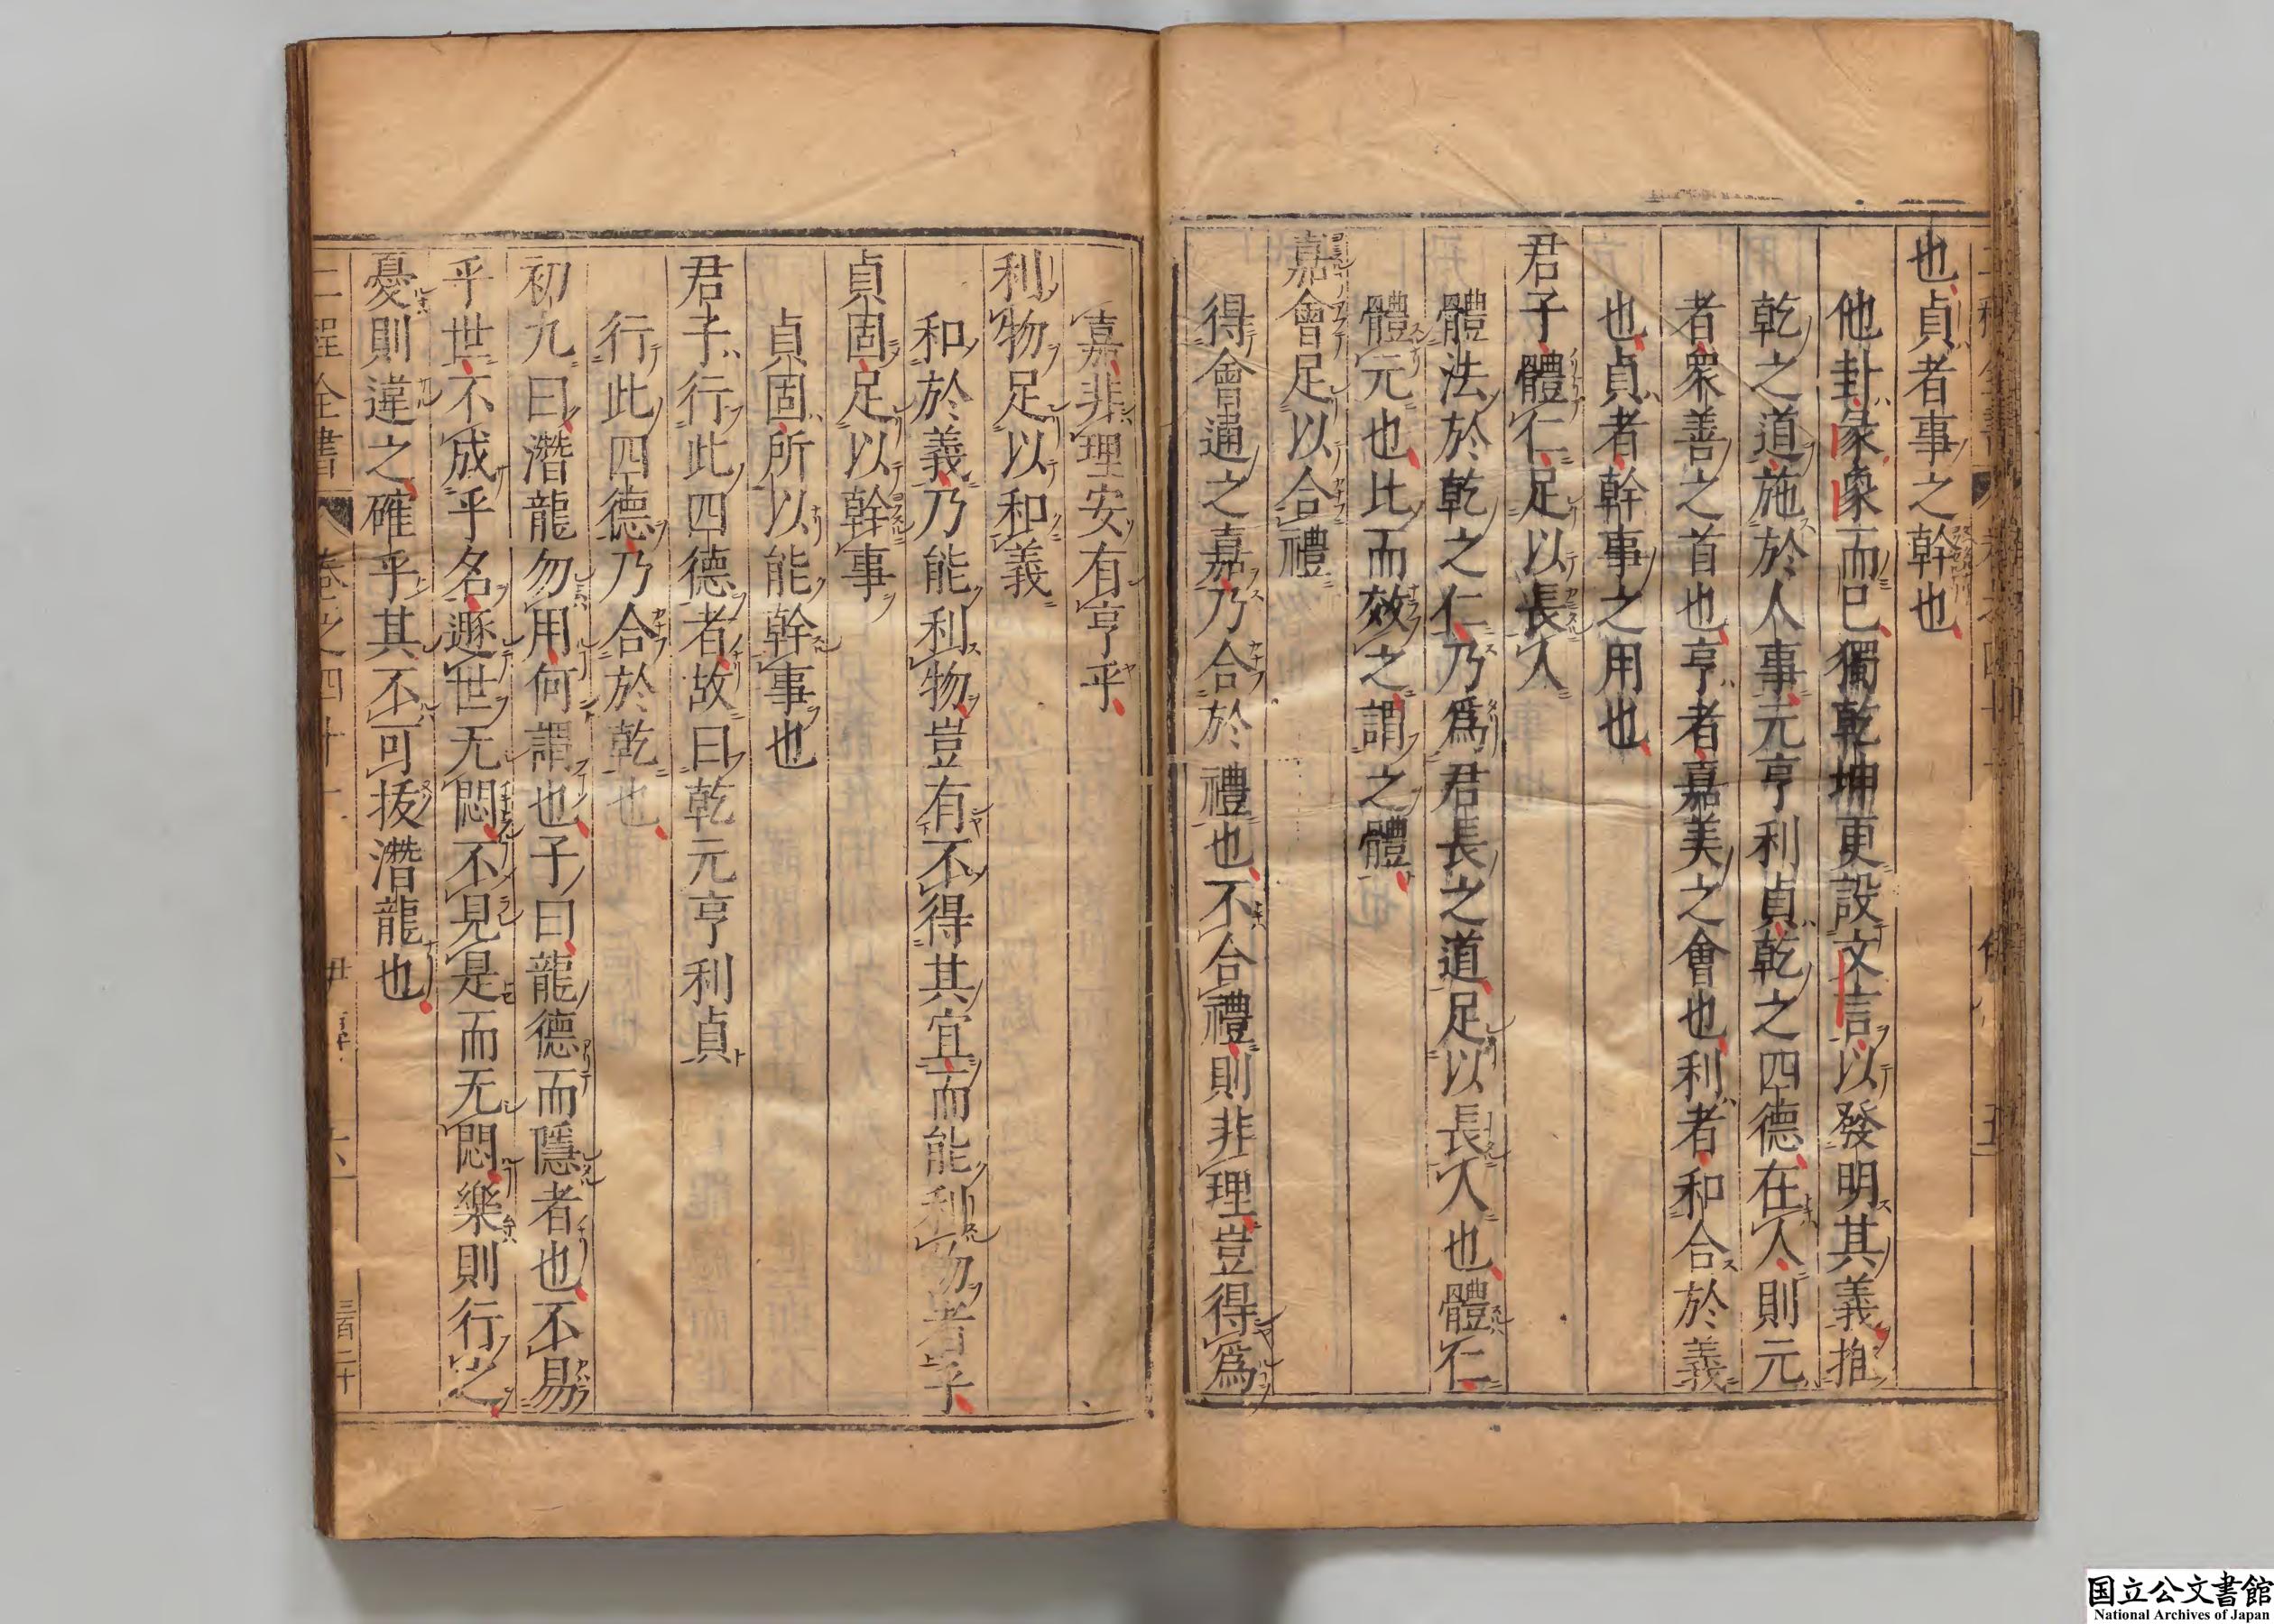 也貞者事之幹也
他卦彖象而已獨乾坤更設文言以發明其義推
乾之道施於人事元亨利貞乾之四德在人則元
者衆善之首也亨者嘉美之會也利者和合於義
也貞者幹事之用也
君子體仁足以長人
體法於乾之仁乃爲君長之道足以長人也體仁
體元也比而效之謂之體
嘉會足以合禮
得會通之嘉乃合於禮也不合禮則非理豈得爲
嘉非理安有亨乎
利物足以和義
和於義乃能利物豈有不得其宜而能利物者乎
貞固足以幹事
貞固所以能幹事也
君子行此四德者故曰乾元亨利貞
行此四德乃合於乾也
初九曰潛龍勿用何謂也子曰龍德而隱者也不易
乎世不成乎名遯世无悶不見是而无悶樂則行之
憂則違之確乎其不可拔潛龍也
二程全書 卷之四十一 六 三百二十
国立公文書館
National Archives of Japan